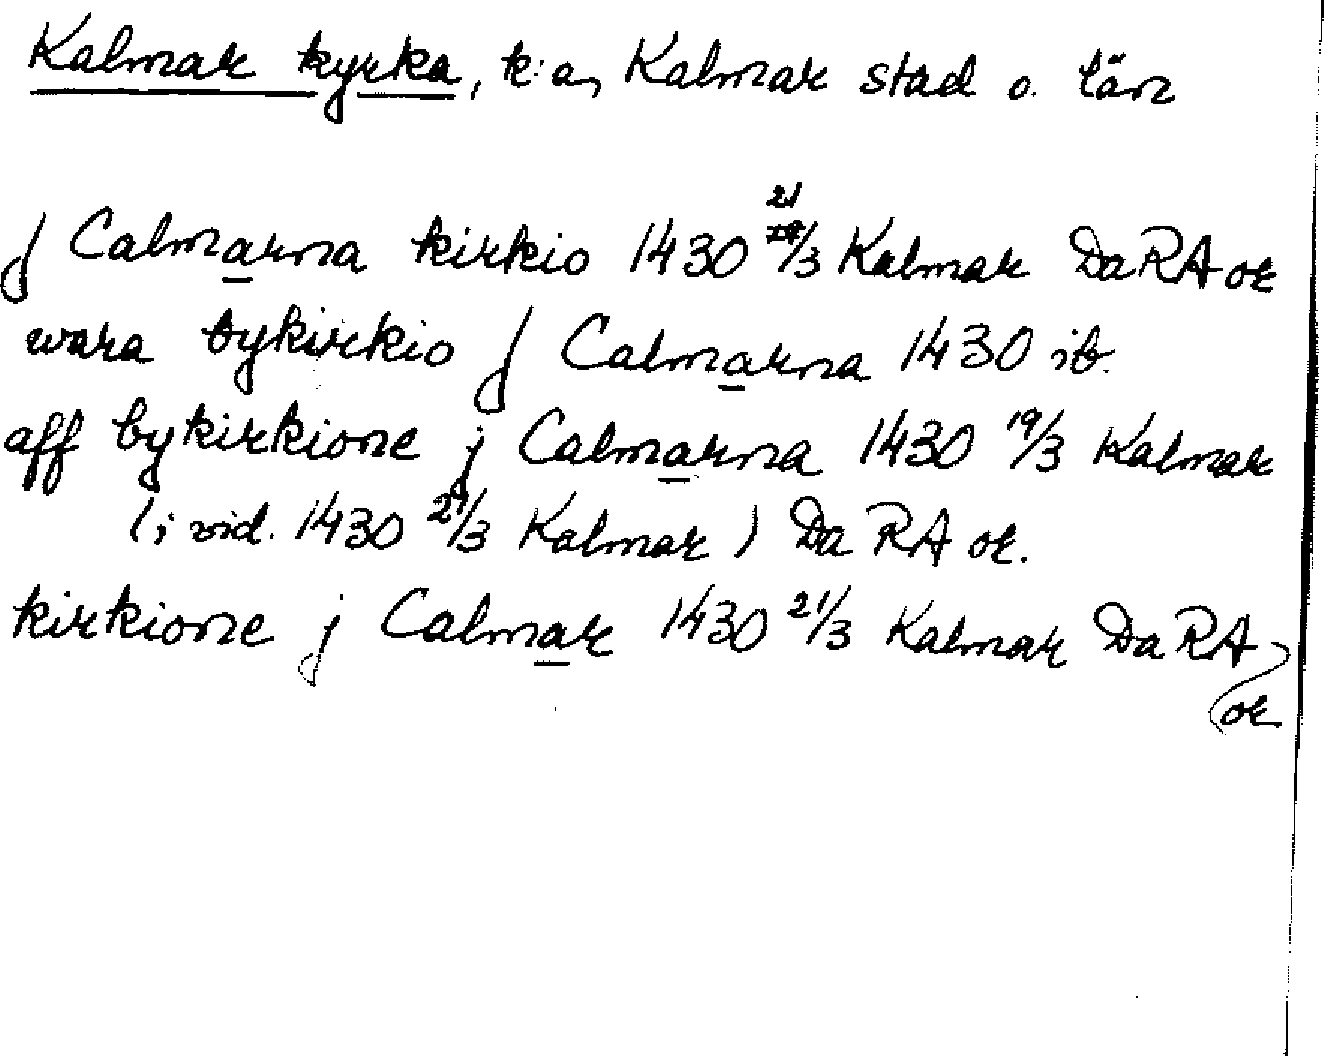 Kalmar kyrka, k:a, Kalmar stad o. län
J Calmarna kirkio 1430 21/3 Kalmar DaRA or
wara bykirkio J Calmarna 1430 ib.
aff bykirkione j Calmarna 1430 19/3 Kalmar
(i vid. 1430 21/3 Kalmar) Da RA or.
kirkione j Calmar 1430 21/3 Kalmar Da RA
or